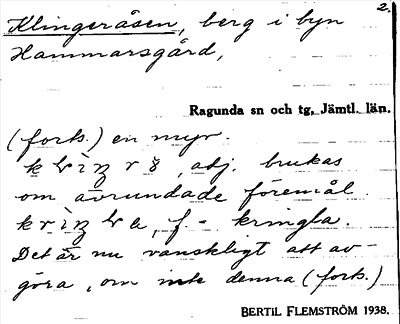 2.
Klingeråsen, berg i byn
Hammarsgård,
Ragunda sn och tg, Jämtl. län.
(forts.) en myr.
adj. brukas
om avrundade föremål.
f. - kringla.
Det är nu vanskligt att av-
göra, om inte denna (forts.)
BERTIL FLEMSTRÖM 1938.